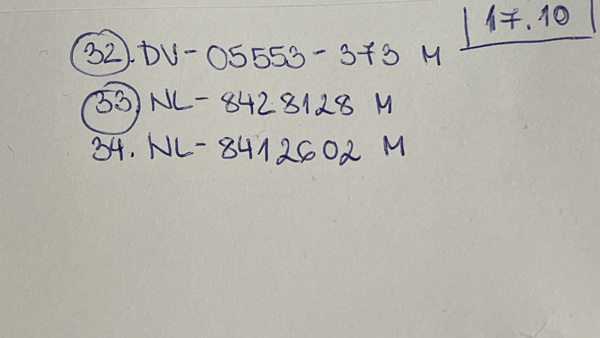 17.10
32. DV-05553-373 M
33. NL-8428128 M
34. NL-8412602 M